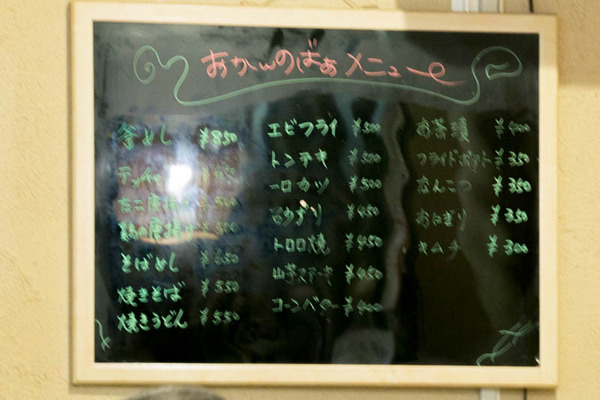 おかんのばぁメニュー
釜めし ¥850
テッチャ
たこ唐揚げ
鶏の唐揚げ
そばめし ¥650
焼きそば ¥550
焼きうどん ¥550
エビフライ ¥500
トンテキ ¥500
一口カツ ¥500
¥450
トロロ焼 ¥450
山芋ステーキ ¥450
コーンバター ¥400
お茶漬 ¥400
フライドポテト ¥350
なんこつ ¥350
おにぎり ¥350
キムチ ¥300